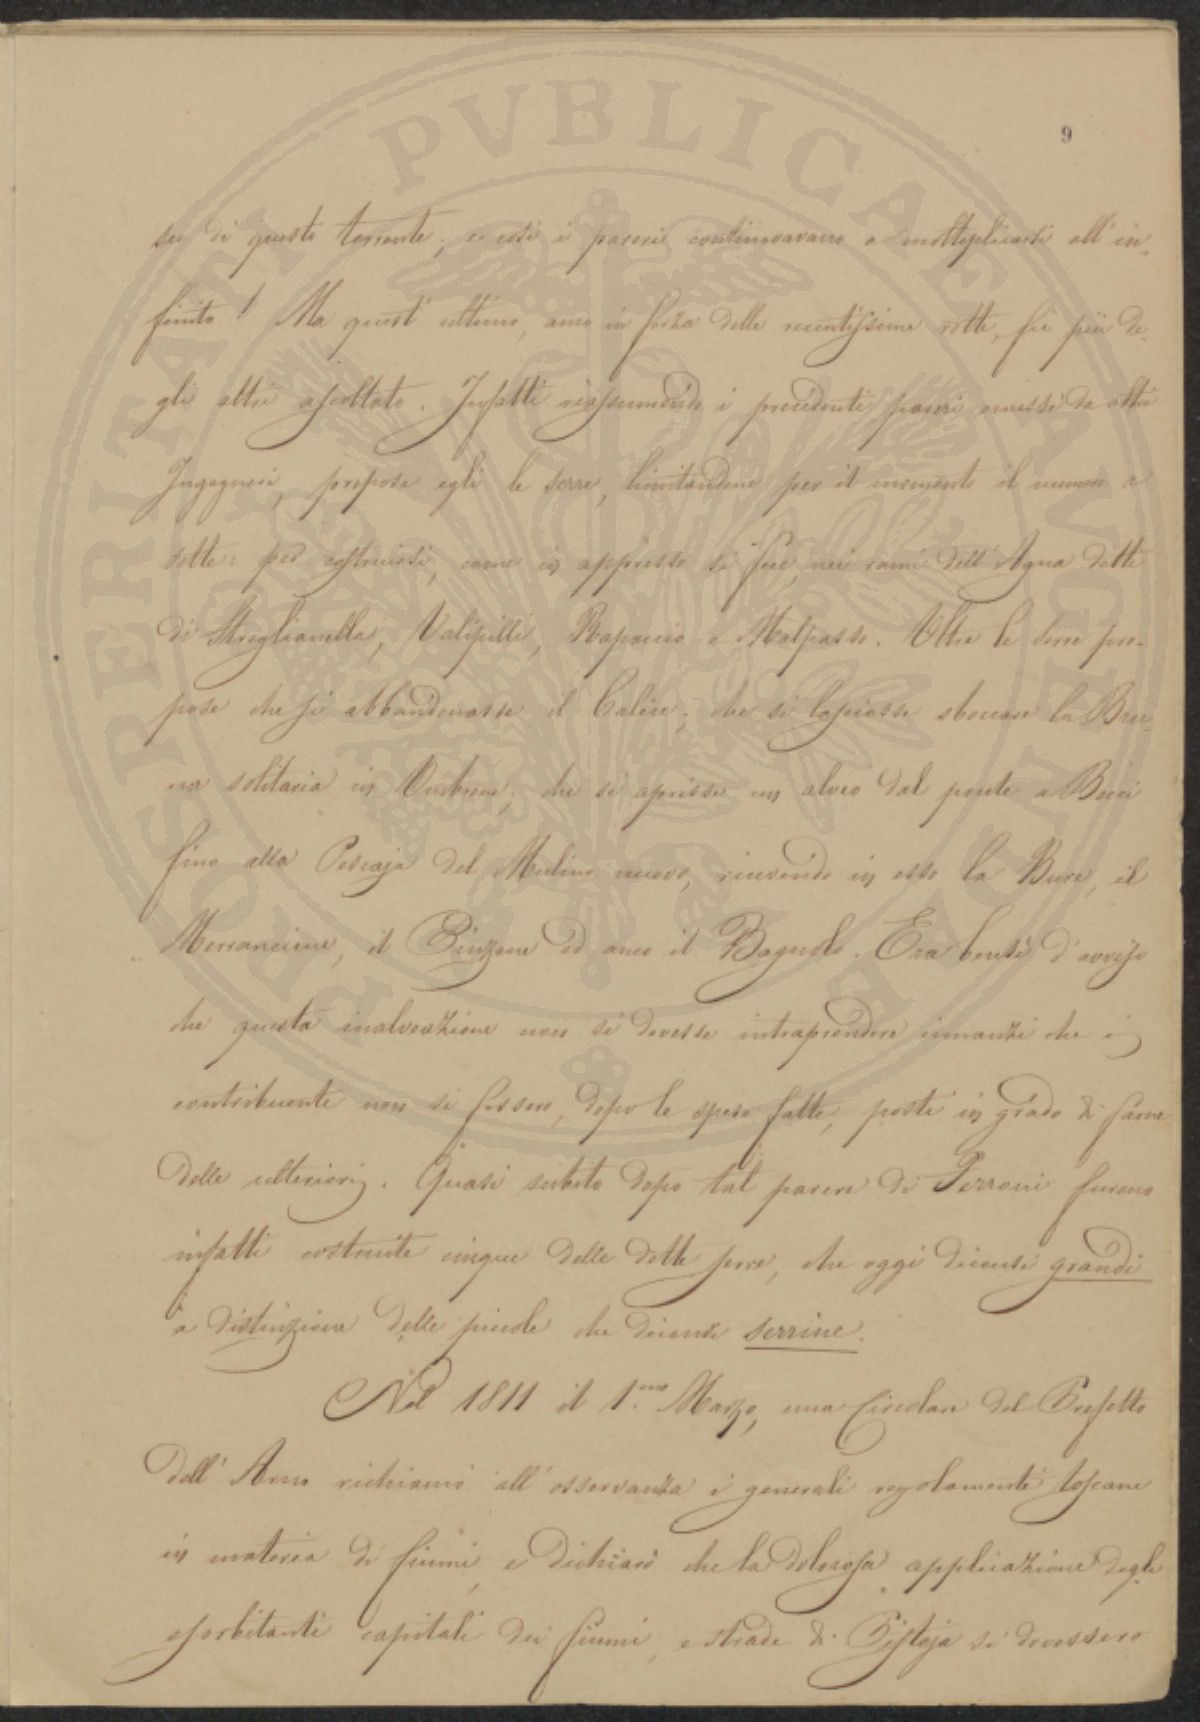 9
su di questo torrente; e così i pareri continuavano a moltiplicarsi all'in-
finito! Ma quest'ultimo, anco in forza delle recentissime rotte, fù più de-
gli altri ascoltato. Infatti riassumendo i precedenti pareri emessi da altri
Ingegneri, propose egli le serre, limitandone per il momento il numero a
sette: per costruirsi, come in appresso si fece, nei rami dell'Agna detti
di Streglianella, Valipilli, e Malpasso. Oltre le serre pro-
pose che si abbandonasse il Calice; che si lasciasse sboccare la Bra-
na solitaria in Ombrone; che si aprisse un alveo dal ponte a Bocci
fino alla Pescaja del Mulino nuovo, ricevendo in esso la Bure, il
Merrancione, il Cinzone ed anco il Bagnolo. Era bensì d'avviso
che questa inalveazione non si dovesse intraprendere innanzi che i
contribuenti non si fossero, dopo le spese fatte, posti in grado di farne
delle ulteriori. Quasi subito dopo tal parere di Ferroni furono
infatti costruite cinque delle dette serre, che oggi diconsi grandi
a distinzione delle piccole che diconsi serrine.
Nel 1811 il 1.mo Marzo, una Circolare del Prefetto
dell'Arno richiamò all'osservanza i generali regolamenti toscani
in materia di fiumi, e dichiarò che la dolorosa applicazione degli
esorbitanti capitali dei fiumi, e strade di Pistoja si dovessero
PROSPERITATI PVBLICAE AVGENDAE